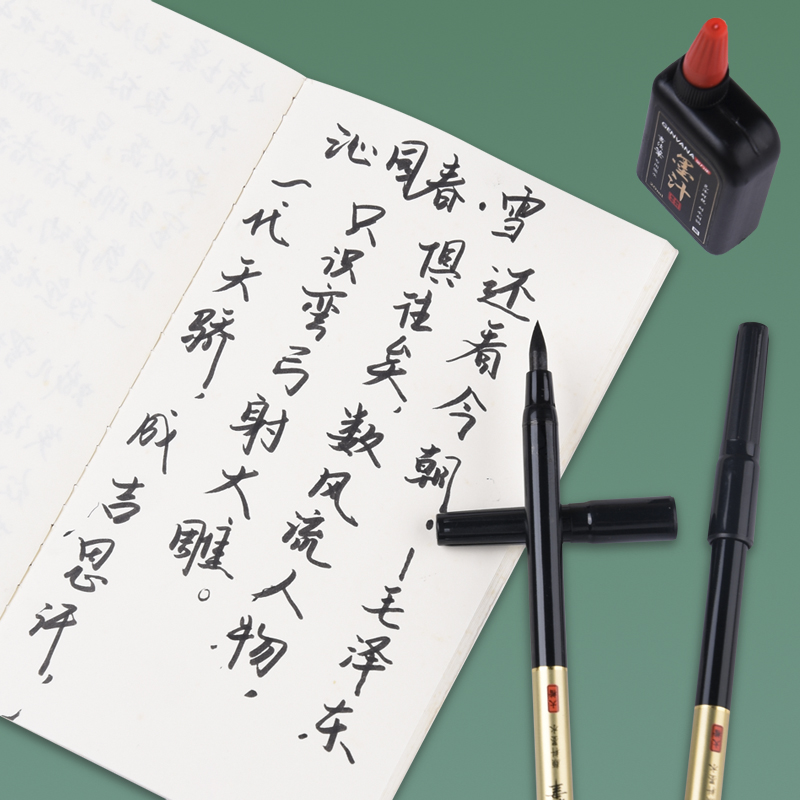 沁园春·雪
一代天骄，成吉思汗，
只识弯弓射大雕。
俱往矣，数风流人物，
还看今朝。
—毛泽东
GENVANA
墨汁